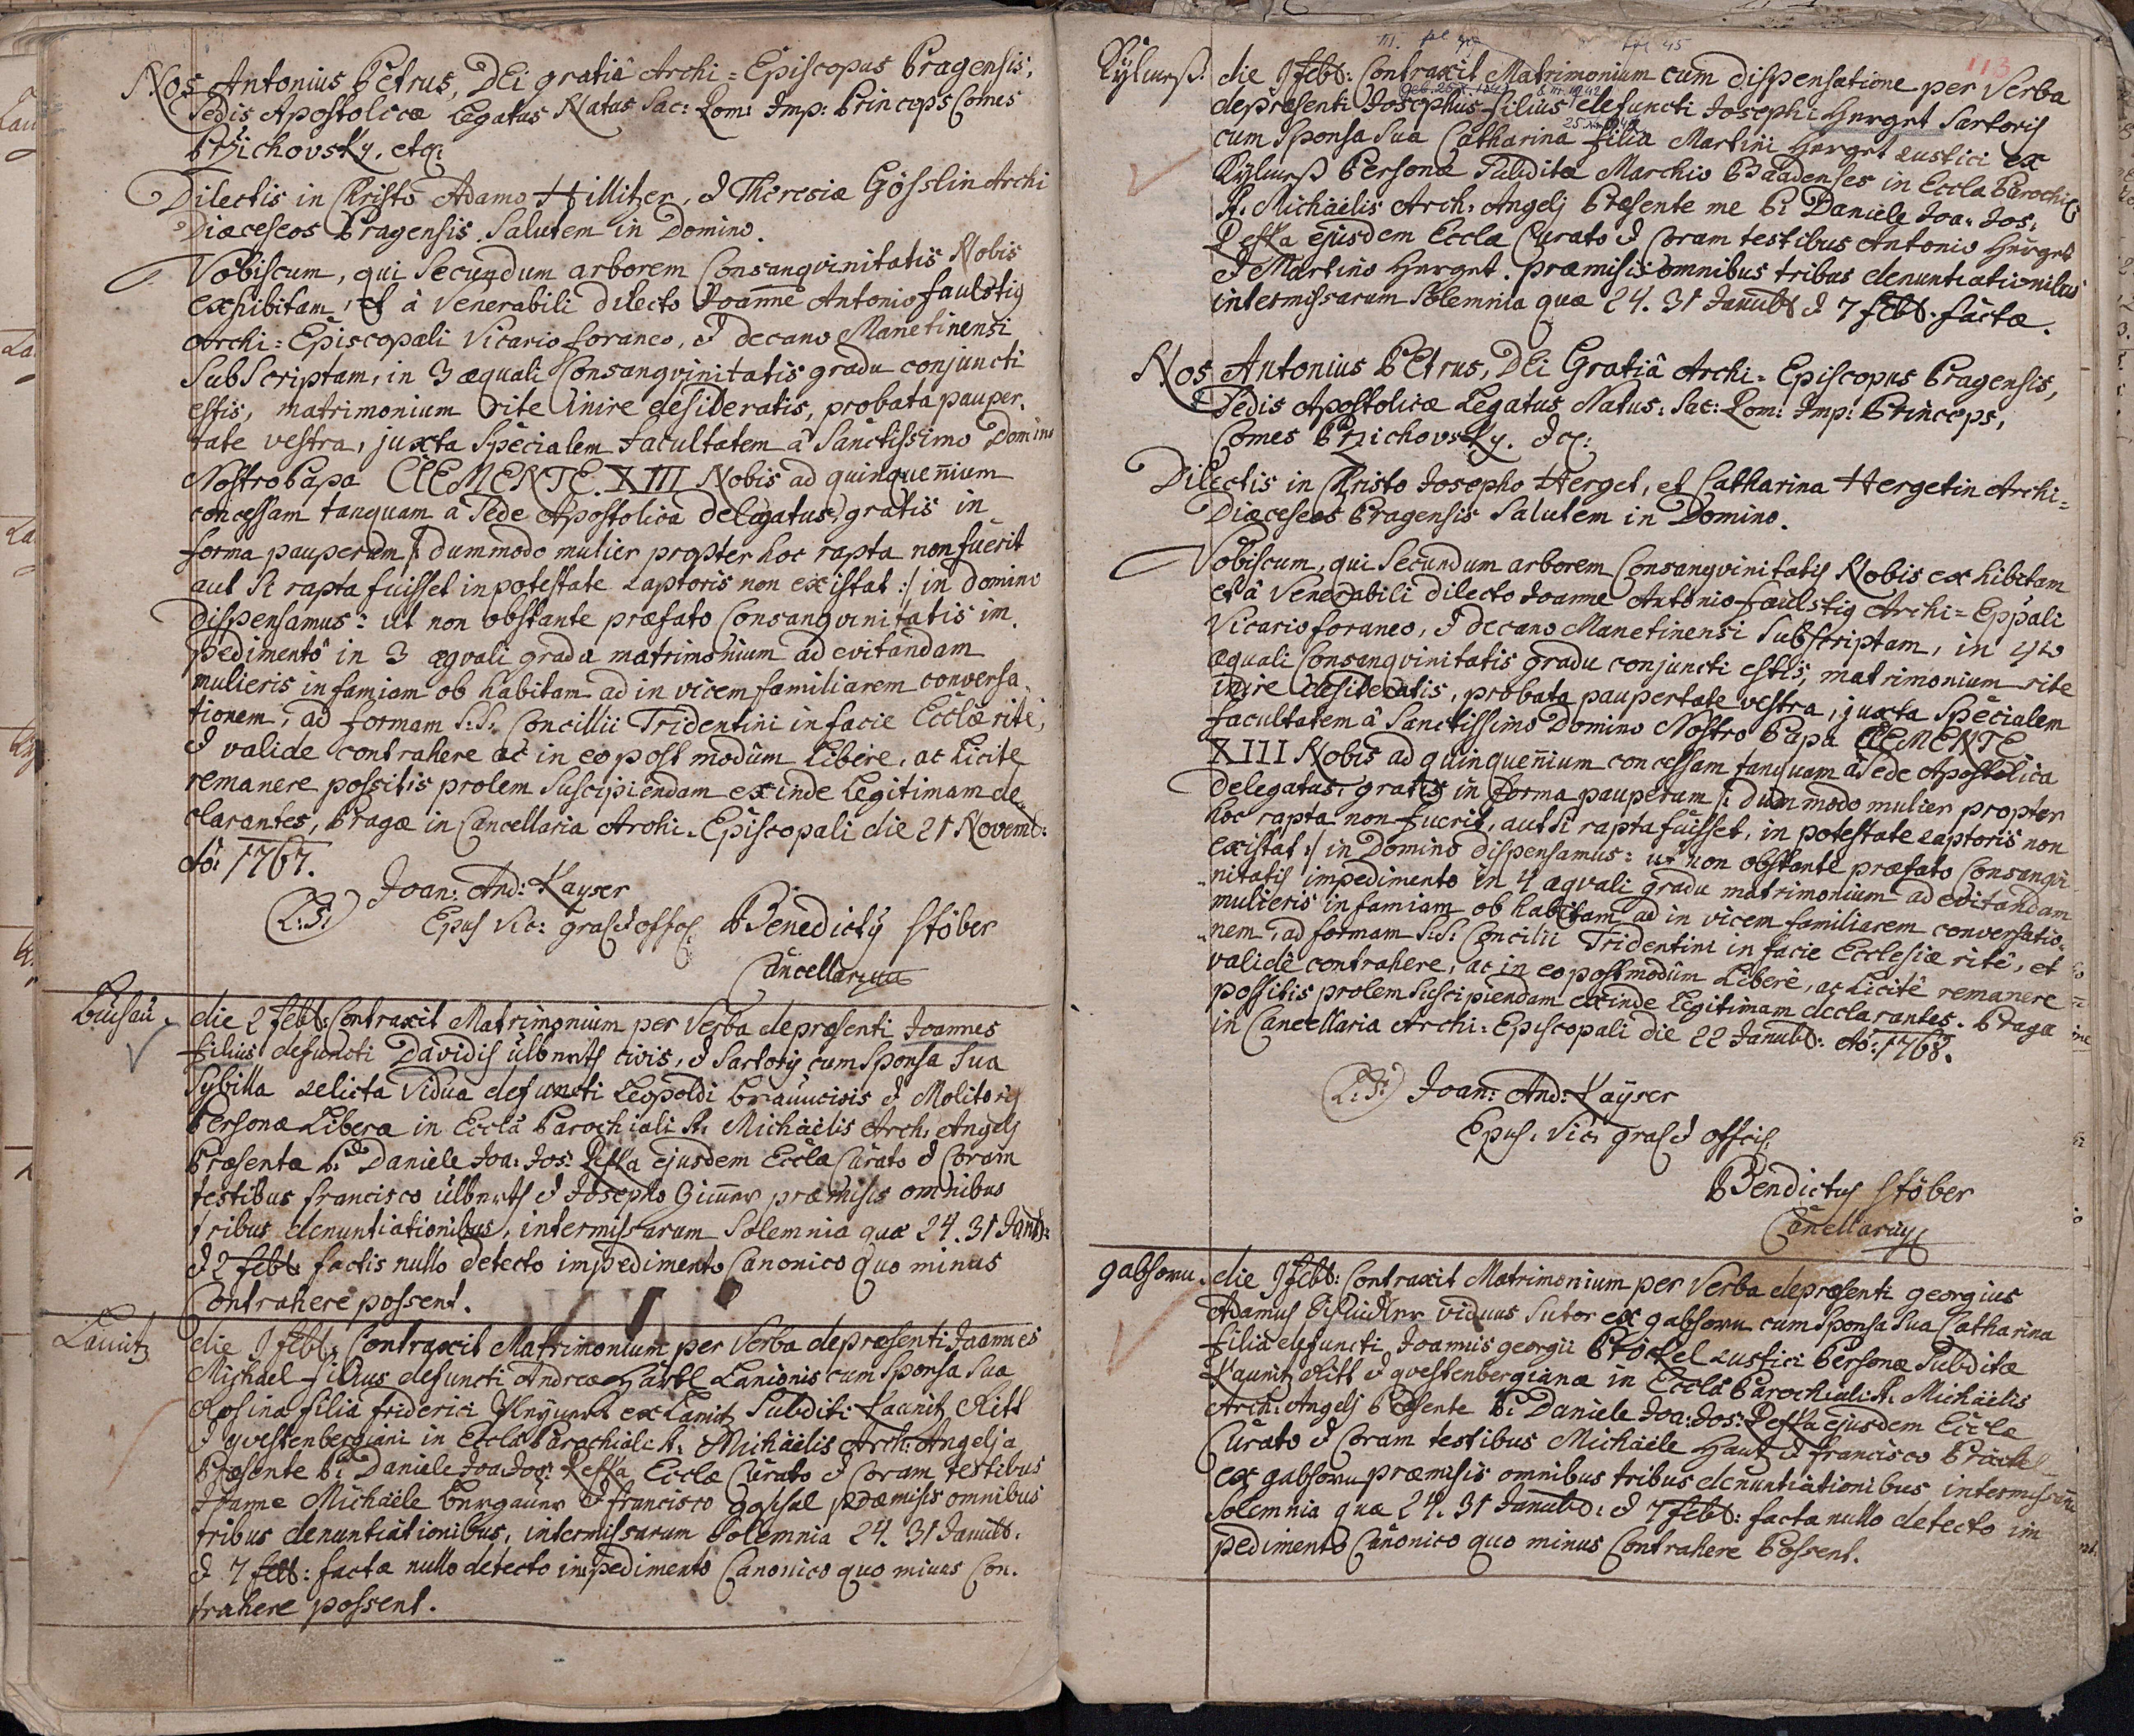 Nos Antonius Petrus, DEi gratiâ Archi=Episcopus Pragensis,
Sedis Apostolicæ Legatus Natus Sac: Rom: Imp: Princeps Comes
Przichovsky, etc:
Dilectis in Christo Adamo Hillitzer, & Theresiæ Gösslin Archi
Diæceseos Pragensis Salutem in Domino.
Vobiscum, qui Secundum arborem Consangvinitatis Nobis
exhibitam, et à Venerabili dilecto Joanne Antonio faulstig
Archi=Episcopali Vicario foraneo, & decano Manetinensi
SubScriptam, in 3 æquali Consangvinitatis gradu conjuncti
estis, matrimonium rite inire desideratis, probata pauper,
tate vestra, juxta Specialem facultatem à Sanctissimo Domino
Nostro Papa ClEMENTE XIII Nobis ad quinquennium
concessam tanquam à Sede Apostolica delegatus, gratis in
forma pauperum /: dummodo mulier propter hoc rapta non fuerit
aut Si rapta fuisset in potestate Raptoris non existat :/ in domino
dispensamus: ut non obstante præfato Consangvinitatis im,
pedimentô in 3 æqvali gradu matrimonium ad evitandam
mulieris infamiam ob habitam ad in vicem familiarem conversa,
tionem, ad formam S:S: Concillii Tridentini in facie Ecclæ ritè,
& valide contrahere ac in eo post modûm Liberè, ac Licite
remanere possitis prolem Suscipiendam ex inde Legitimam de,
clarantes, Pragæ in Cancellaria Archi-Episcopali die 21 Novemb:
Aô: 1767.
(L:S:) Joan: And: Kayser
Epus Vic: gralis & offlis: Benedictus Stöber
Cancellarius
Buchau. die 2 febr: Contraxit Matrimonium per Verba de præsenti Joannes
filius defuncti Davidis ülberth civis, & Sartoris cum Sponsa Sua
Sybilla Relicta Vidua defuncti Leopoldi civis & Molitoris
Personæ Liberæ in Eccla Parochiali S: Michäelis Arch: Angelj
Præsente P: Daniele Joa: Jos: ejusdem Ecclæ Curato & Coram
testibus francisco ülberth & Josepho præmisis omnibus
tribus denuntiationibus, inter missarum Solemnia quæ 24. 31 Janu:
& 2 febr: factis nullo detecto impedimento Canonico quo minus
Contrahere possent.
die 9 febr: Contraxit Matrimonium per Verba de præsenti Joannes
Michael filius defuncti Andreæ Härtl Lanionis cum Sponsa Sua
Rosina filia friderici ex Subditi Kaunitz Ritt
& qvestenbergiani in Eccla Parochiali S: Michäelis Arch: Angelj a
Præsente P: Daniele Joa: Jos: Ecclæ Curato & Coram testibus
Joanne Michäele & francisco præmisis omnibus
tribus denuntiationibus, inter missarum Solemnia 24. 31 Januar:
& 7 febr: factæ nullo detecto impedimento Canonico quo minus Con,
trahere possent.
113
die 9 febr: Contraxit Matrimonium cum dispensatione per Verba
de præsenti Josephus filius defuncti Josephi Herget Sartoris
cum Sponsa Sua Catharina filia Martini Herget Rustici ex
Personæ Subditæ Marchio Baadenses in Eccla Parochiali
S: Michäelis Arch: Angelj Præsente me P: Daniele Joa: Jos:
ejusdem Ecclæ Curato & Coram testibus Antonio Herget
& Martino Herget. præmisis omnibus tribus denuntiationibus
inter missarum Solemnia quæ 24. 31 Januar & 7 febr. factæ.
Nos Antonius PEtrus, DEi Gratiâ Archi=Episcopus Pragensis,
Sedis Apostolicæ Legatus Natus: Sac: Rom: Imp: Princeps,
Comes Przichovsky. &c:
Dilectis in Christo Josepho Herget, et Catharina Hergetin Archi=
Diæceseos Pragensis Salutem in Domino.
Vobiscum, qui Secundum arborem Consangvinitatis Nobis exhibitam
et à Venerabili dilecto Joanne Antonio faulstig Archi=Eppali
Vicario foraneo, & decano Manetinensi Subscriptam, in 4to
æquali Consangvinitatis gradu conjuncti estis, matrimonium rite
inire desideratis, probata paupertate vestra, juxta Specialem
facultatem à Sanctissimo Domino Nostro Papa ClEMENTE
XIII Nobis ad quinquennium concessam tanquam à Sede Apostolica
delegatus, gratis in forma pauperum /: dummodo mulier propter
hoc rapta non fuerit, aut si rapta fuisset, in potestate Raptoris non
existat :/ in Domino dispensamus: ut non obstante præfato Consangvi
nitatis impedimento in 4 æqvali gradu matrimonium ad evitandam
mulieris infamiam ob habitam ad in vicem familiarem conversatio,
nem, ad formam S:S: Concilii Tridentini in facie Ecclesiæ ritè, et
validè contrahere, ac in eo postmodûm Liberè, ac Licitè remanere
possitis prolem Suscipiendam exinde Legitimam declarantes. Pragæ
in Cancellaria Archi=Episcopali die 22 Januar: Aô: 1768.
(L:S:) Joan: And: Kaÿser
Epus. Vic: gralis & offlis
Bendictus Stöber
Cancellarius
gabhorn. die 9 febr: Contraxit Matrimonium per Verba de præsenti georgius
Adamus viduus Sutor ex gabhorn cum Sponsa Sua Catharina
filia defuncti Joannis georgii Pröckel Rustici Personæ Subditæ
Kaunitz Ritt & qvestenbergianæ in Eccla Parochiali S: Michäelis
Arch: Angelj Præsente P: Daniele Joa: Jos: ejusdem Ecclæ
Curato & Coram testibus Michäele Hautz & francisco
ex gabhorn præmisis omnibus tribus denuntiationibus inter missarum
Solemnia quæ 24. 31 Januar: & 7 febr: facta nullo detecto im
pedimento Canonico quo minus Contrahere Possent.